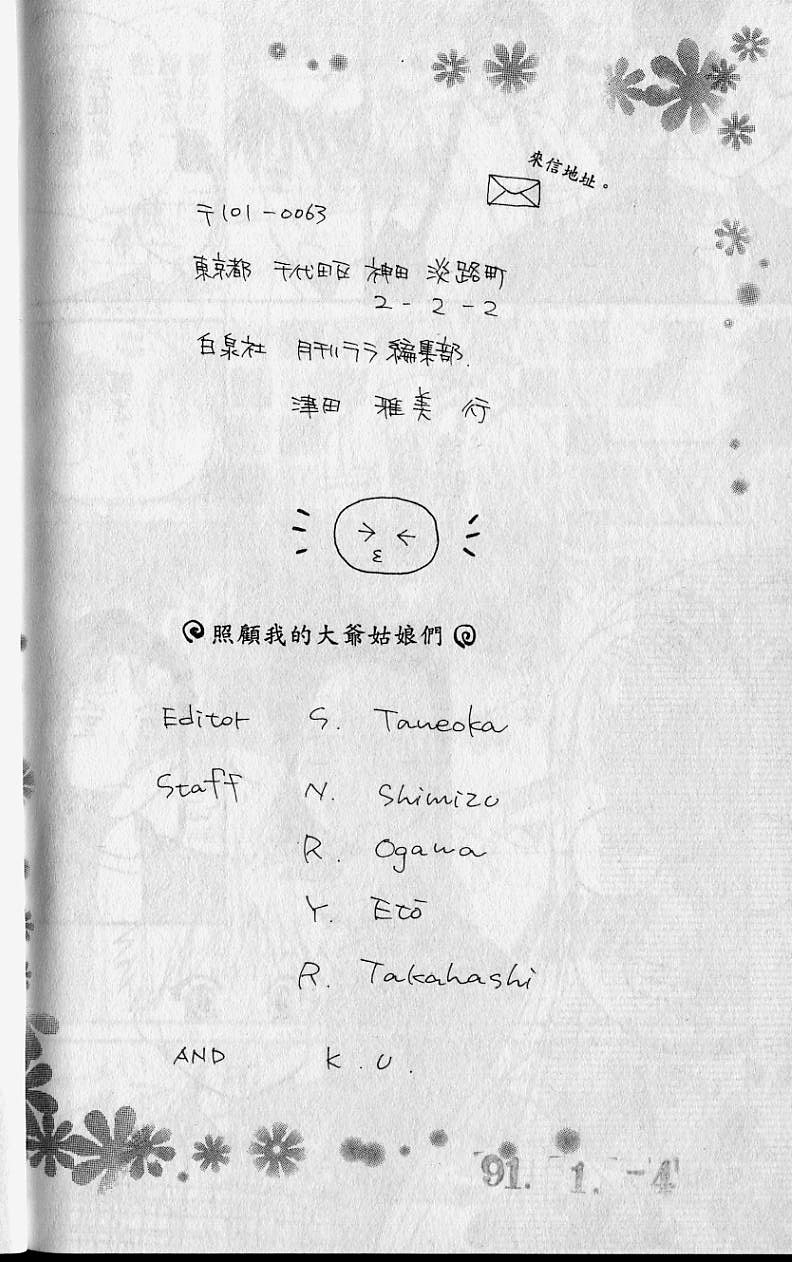 來信地址。
〒101-0063
東京都 千代田区 神田 淡路町
2-2-2
白泉社 月刊ララ編集部.
津田 雅美 行
照顧我的大爺姑娘們
Editor S. Taneoka
Staff N. Shimizu
R. Ogawa
Y. Etō
R. Takahashi
AND K.U.
91. 1. -4